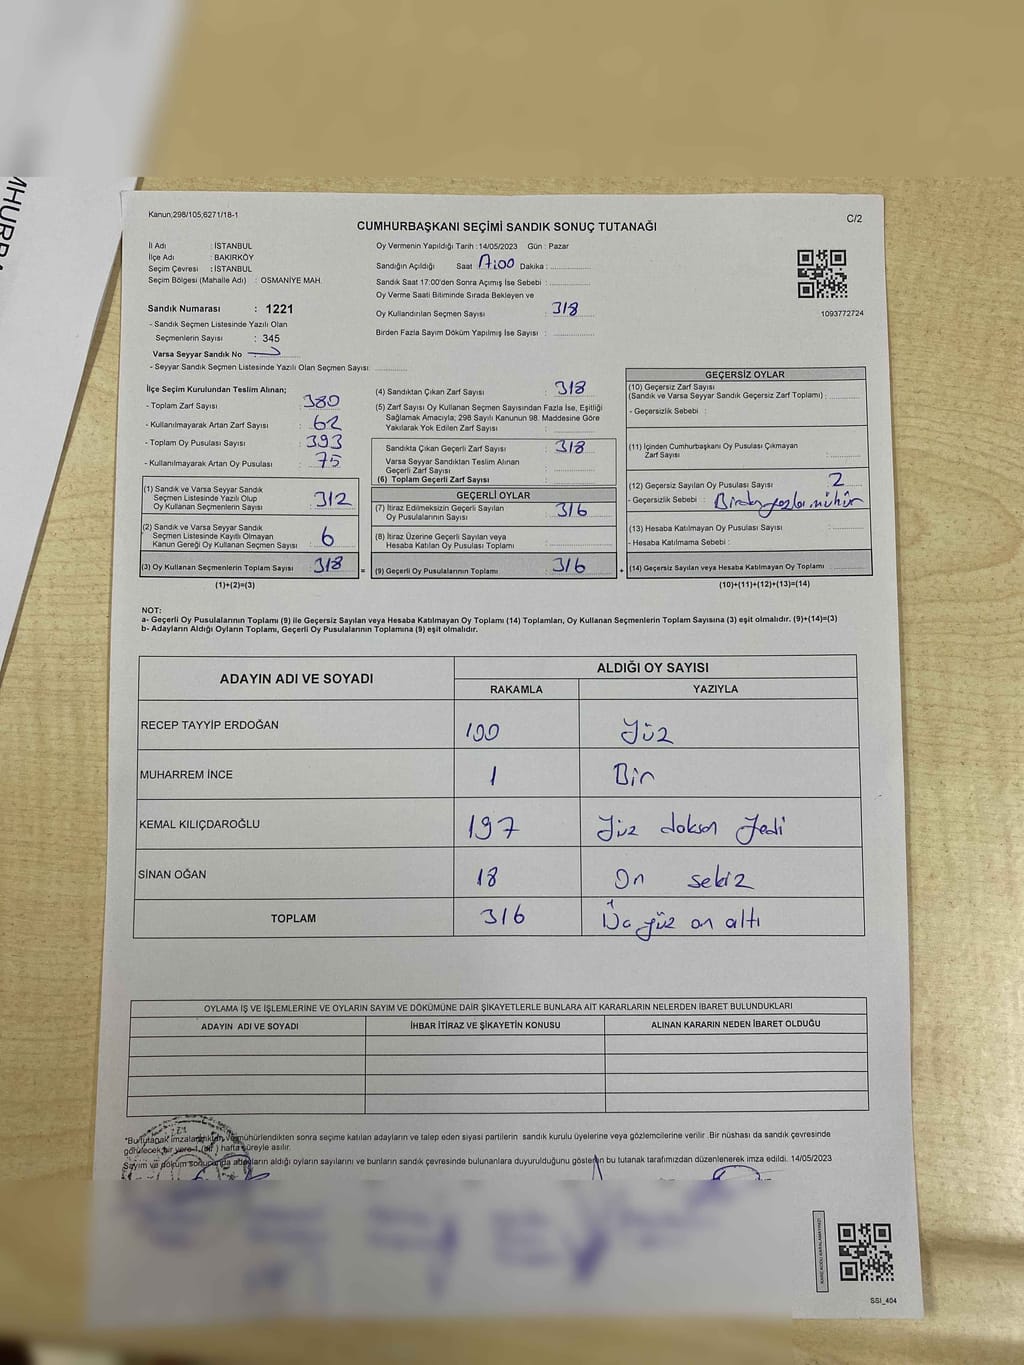 MHURBA
Kanun;298/105;6271/18-1
C/2
CUMHURBAŞKANI SEÇİMİ SANDIK SONUÇ TUTANAĞI
İl Adı : İSTANBUL
İlçe Adı : BAKIRKÖY
Seçim Çevresi : İSTANBUL
Seçim Bölgesi (Mahalle Adı) : OSMANİYE MAH.
Sandık Numarası : 1221
- Sandık Seçmen Listesinde Yazılı Olan
Seçmenlerin Sayısı : 345
Varsa Seyyar Sandık No
- Seyyar Sandık Seçmen Listesinde Yazılı Olan Seçmen Sayısı
Oy Vermenin Yapıldığı Tarih : 14/05/2023 Gün : Pazar
Sandığın Açıldığı Saat 17:00 Dakika :
Sandık Saat 17:00'den Sonra Açımış İse Sebebi :
Oy Verme Saati Bitiminde Sırada Bekleyen ve
Oy Kullandırılan Seçmen Sayısı : 318
Birden Fazla Sayım Döküm Yapılmış İse Sayısı :
1093772724
İlçe Seçim Kurulundan Teslim Alınan;
- Toplam Zarf Sayısı : 380
- Kullanılmayarak Artan Zarf Sayısı : 62
- Toplam Oy Pusulası Sayısı : 393
- Kullanılmayarak Artan Oy Pusulası : 75
(1) Sandık ve Varsa Seyyar Sandık
Seçmen Listesinde Yazılı Olup
Oy Kullanan Seçmenlerin Sayısı : 312
(2) Sandık ve Varsa Seyyar Sandık
Seçmen Listesinde Kayıtlı Olmayan
Kanun Gereği Oy Kullanan Seçmen Sayısı : 6
(3) Oy Kullanan Seçmenlerin Toplam Sayısı : 318
(1)+(2)=(3)
(4) Sandıktan Çıkan Zarf Sayısı : 318
(5) Zarf Sayısı Oy Kullanan Seçmen Sayısından Fazla İse, Eşitliği
Sağlamak Amacıyla; 298 Sayılı Kanunun 98. Maddesine Göre
Yakılarak Yok Edilen Zarf Sayısı :
Sandıkta Çıkan Geçerli Zarf Sayısı : 318
Varsa Seyyar Sandıktan Teslim Alınan
Geçerli Zarf Sayısı :
(6) Toplam Geçerli Zarf Sayısı :
GEÇERLİ OYLAR
(7) İtiraz Edilmeksizin Geçerli Sayılan
Oy Pusulalarının Sayısı : 316
(8) İtiraz Üzerine Geçerli Sayılan veya
Hesaba Katılan Oy Pusulası Toplamı :
(9) Geçerli Oy Pusulalarının Toplamı : 316
=
+
GEÇERSİZ OYLAR
(10) Geçersiz Zarf Sayısı
(Sandık ve Varsa Seyyar Sandık Geçersiz Zarf Toplamı) :
- Geçersizlik Sebebi :
(11) İçinden Cumhurbaşkanı Oy Pusulası Çıkmayan
Zarf Sayısı :
(12) Geçersiz Sayılan Oy Pusulası Sayısı : 2
- Geçersizlik Sebebi : Birden fazla mühür
(13) Hesaba Katılmayan Oy Pusulası Sayısı :
- Hesaba Katılmama Sebebi :
(14) Geçersiz Sayılan veya Hesaba Katılmayan Oy Toplamı :
(10)+(11)+(12)+(13)=(14)
NOT:
a- Geçerli Oy Pusulalarının Toplamı (9) ile Geçersiz Sayılan veya Hesaba Katılmayan Oy Toplamı (14) Toplamları, Oy Kullanan Seçmenlerin Toplam Sayısına (3) eşit olmalıdır. (9)+(14)=(3)
b- Adayların Aldığı Oyların Toplamı, Geçerli Oy Pusulalarının Toplamına (9) eşit olmalıdır.
ADAYIN ADI VE SOYADI ALDIĞI OY SAYISI
RAKAMLA YAZIYLA
RECEP TAYYİP ERDOĞAN 100 Yüz
MUHARREM İNCE 1 Bir
KEMAL KILIÇDAROĞLU 197 Yüz doksan Yedi
SİNAN OĞAN 18 On sekiz
TOPLAM 316 Üç yüz on altı
OYLAMA İŞ VE İŞLEMLERİNE VE OYLARIN SAYIM VE DÖKÜMÜNE DAİR ŞİKAYETLERLE BUNLARA AİT KARARLARIN NELERDEN İBARET BULUNDUKLARI
ADAYIN ADI VE SOYADI İHBAR İTİRAZ VE ŞİKAYETİN KONUSU ALINAN KARARIN NEDEN İBARET OLDUĞU
*Bu tutanak imzalandıktan ve mühürlendikten sonra seçime katılan adayların ve talep eden siyasi partilerin sandık kurulu üyelerine veya gözlemcilerine verilir. Bir nüshası da sandık çevresinde
görülecek bir yere 1 (bir) hafta süreyle asılır.
Sayım ve döküm sonucunda adayların aldığı oyların sayılarını ve bunların sandık çevresinde bulunanlara duyurulduğunu gösteren bu tutanak tarafımızdan düzenlenerek imza edildi. 14/05/2023
SSI_404